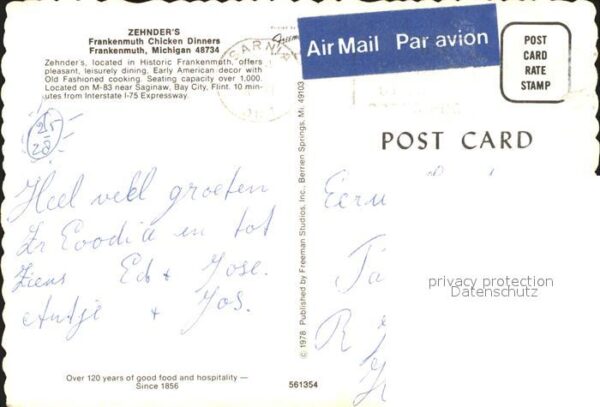 ZEHNDER'S
Frankenmuth Chicken Dinners
Frankenmuth, Michigan 48734
Zehnder's, located in Historic Frankenmuth, offers
pleasant, leisurely dining. Early American decor with
Old Fashioned cooking. Seating capacity over 1,000.
Located on M-83 near Saginaw, Bay City, Flint. 10 min-
utes from Interstate I-75 Expressway.
Heel veel groeten
Zr Eoodia en tot
Ziens Ed + Jose.
Antje + Jos.
Over 120 years of good food and hospitality —
Since 1856
561354
© 1978. Published by Freeman Studios, Inc., Berrien Springs, Mi. 49103
SARNIA
Air Mail Par avion
POST
CARD
RATE
STAMP
POST CARD
privacy protection
Datenschutz